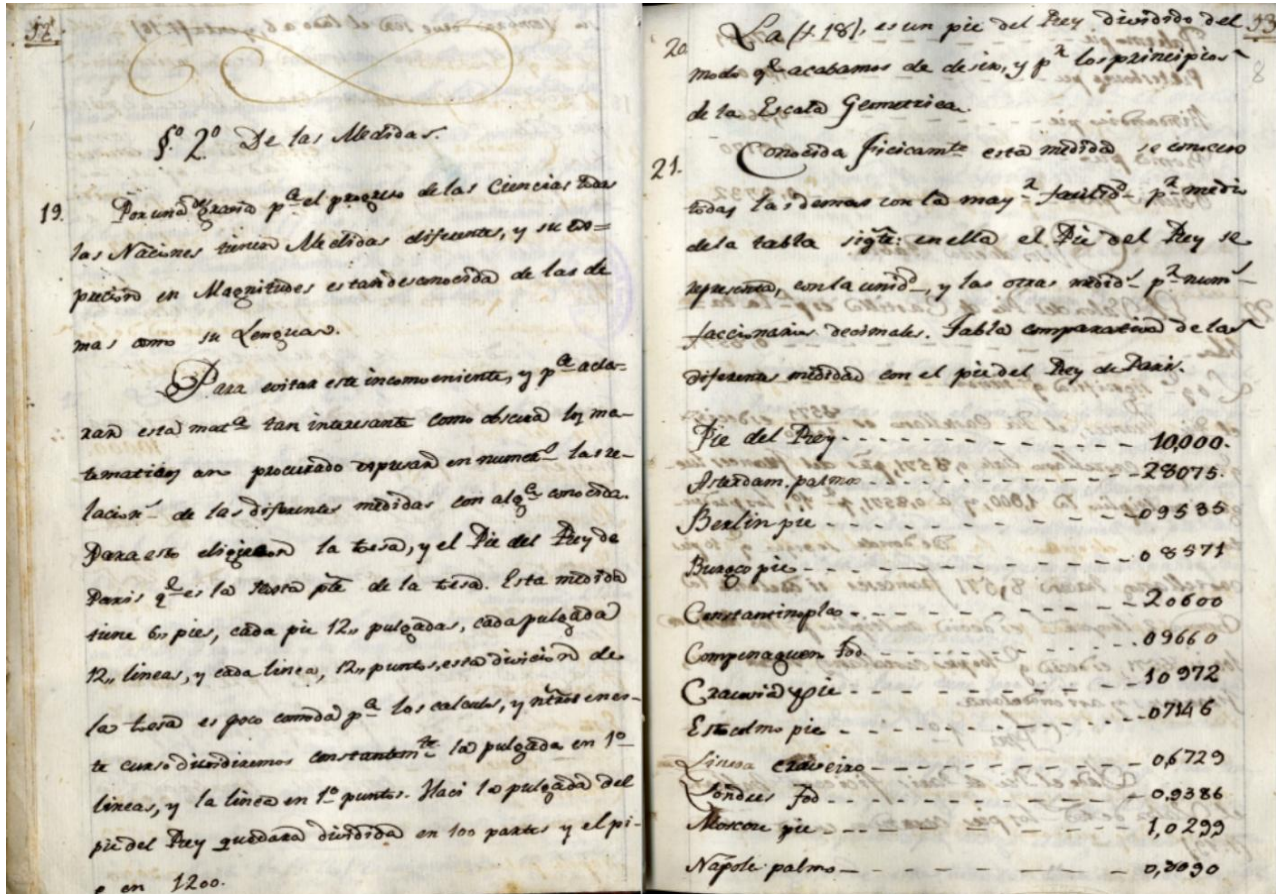 52.
§.º 2º De las Medidas.
19. Por una desgracia pª el progreso de las Ciencias todas
las Naciones tienen Medidas diferentes, y su ex=
precion en Magnitudes es tan desconocida de las de
mas como su Lenguax.
Para evitar este incomveniente, y pª acla-
rar esta matª tan interesante como obscura los ma-
tematicos an procurado espresar en numerˢ las re-
lacionˢ de las diferentes medidas con algª conocida.
Para esto eligieron la toesa, y el Pie del Rey de
Paris qᵉ es la sexta pᵗᵉ de la toesa. Esta medida
tiene 6,, pies, cada pie 12,, pulgadas, cada pulgada
12,, lineas, y cada linea, 12,, puntos, esta divicion de
la toesa es poco comoda pª los calculos, y ntros en es-
te curso dividiremos constantemᵗᵉ la pulgada en 1º
lineas, y la linea en 1º puntos. Haci la pulgada del
pie del Rey quedara dividida en 100 partes y el pi-
e en 1200.
53
8
20 La (f. 18), es un pie del Rey dividido del
modo qᵉ acabamos de desir, y pʳ los principios
de la Escala Geometrica.
21. Conocida ficicamᵗᵉ esta medida se conocen
todas las demas con la mayʳ facilidᵈ pʳ medio
de la tabla sigᵗᵉ: en ella el Pie del Rey se
representa, con la unidᵈ, y las otras medidˢ pʳ numˢ
faccionarios decimales. Tabla comparativa de las
diferentes medidad con el pie del Rey de Paris.
Pie del Rey - - - - - - - - - - 10,000.
Asterdam. palmos - - - - - - - - - 28075.
Berlin pie - - - - - - - - - - 09535
Burgos pie - - - - - - - - - - 08571
Constantinopla - - - - - - - - - 20600
Compenaguen fod - - - - - - - - 09660
Cracuvia pie - - - - - - - - - 10972
Estocolmo pie - - - - - - - - - 07146
craveiro - - - - - - - - - 0,6729
Londres fod - - - - - - - - - 0,9386
Moscou pie - - - - - - - - - 1,0299
Napole palmo - - - - - - - - 0,8090